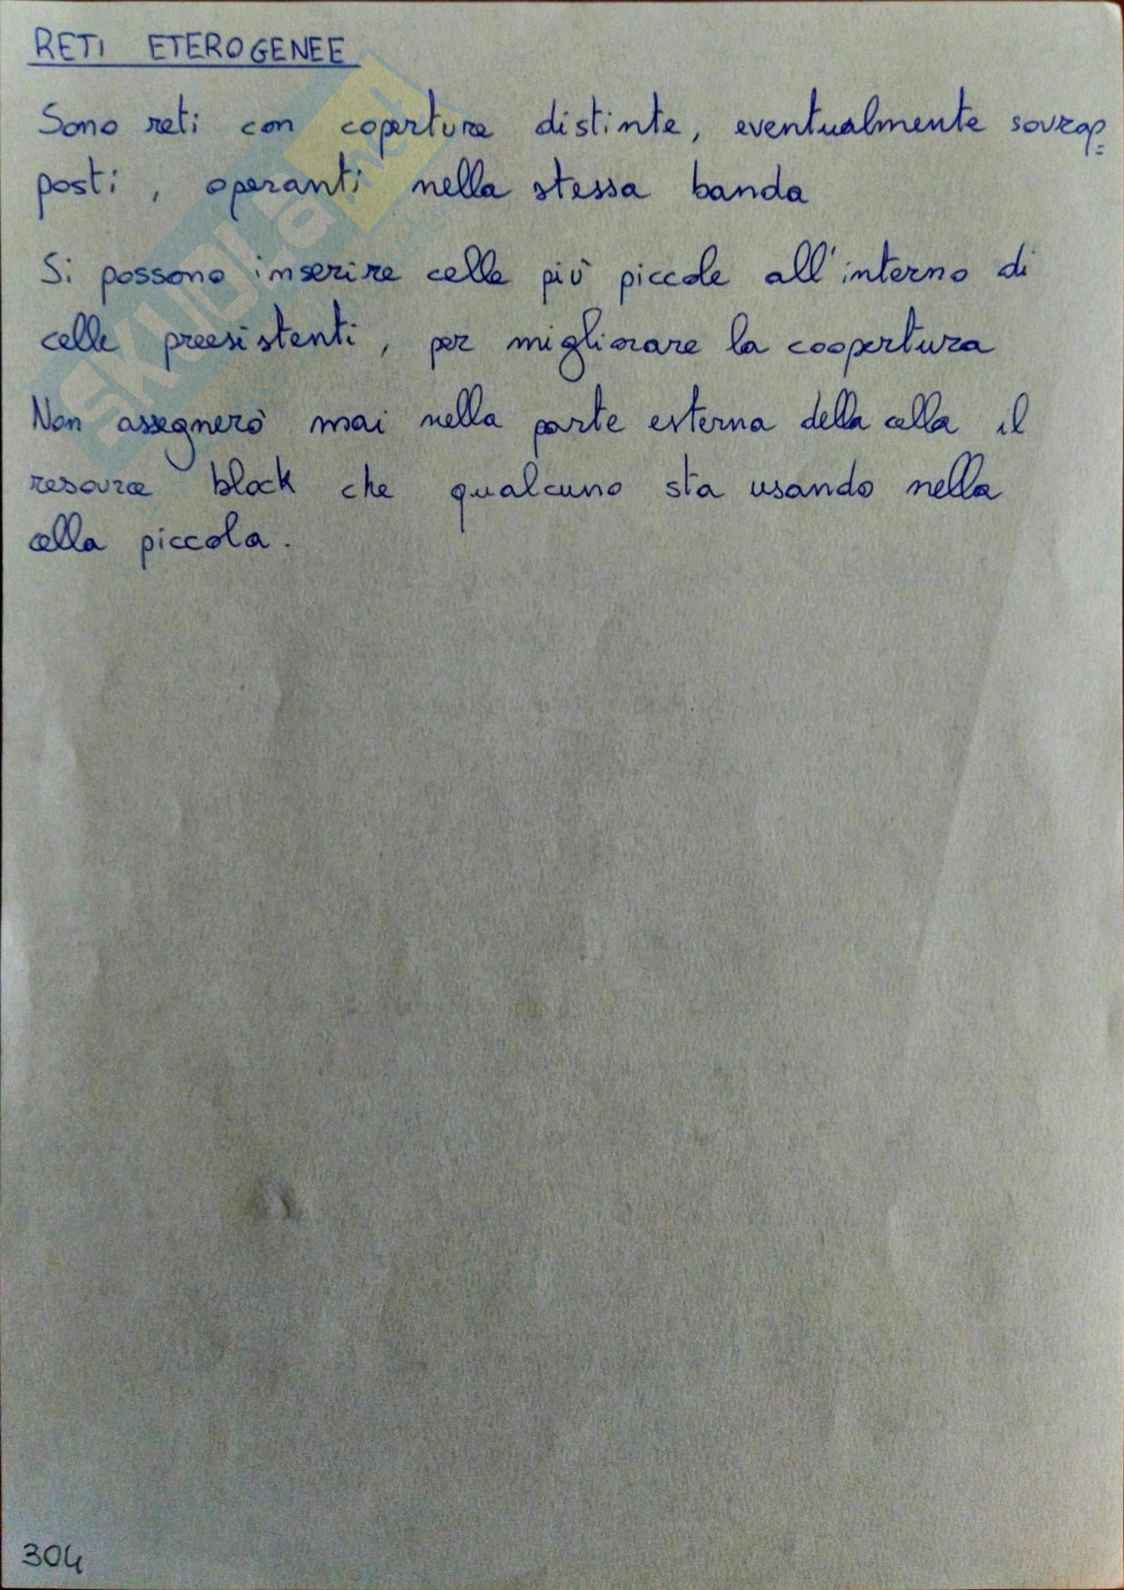 RETI ETEROGENEE
Sono reti con coperture distinte, eventualmente sovrap=
posti, operanti nella stessa banda
Si possono inserire celle più piccole all'interno di
celle preesistenti, per migliorare la coopertura
Non assegnerò mai nella parte esterna della cella il
resource block che qualcuno sta usando nella
cella piccola.
304
SKUOLA.net